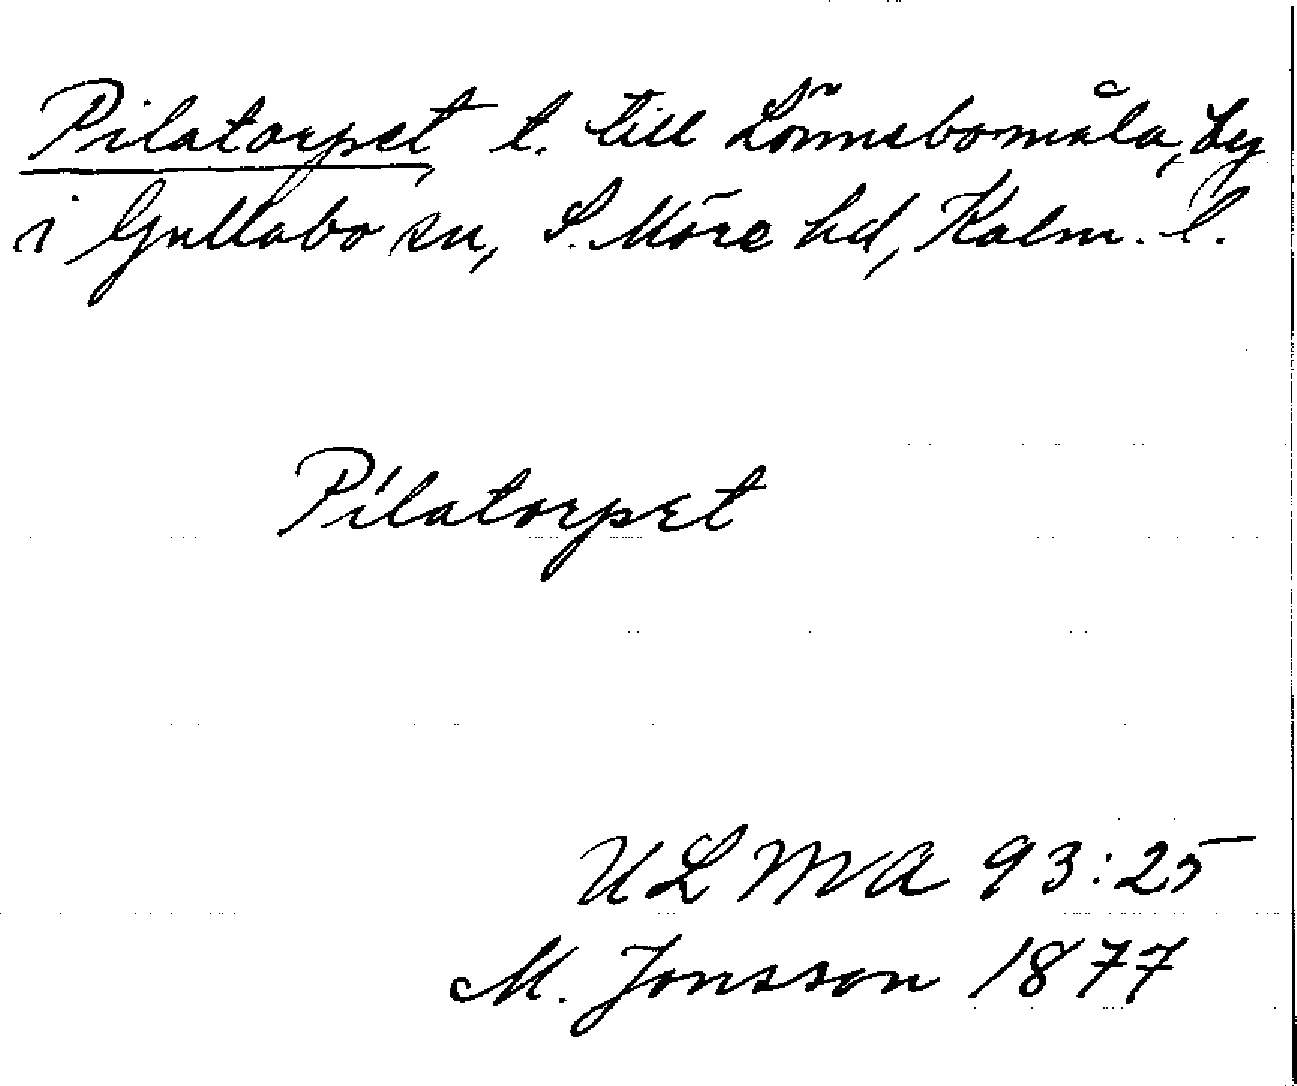 Pilatorpet, t. till Lönnebomåla, by
i Gullabo sn, S. Möre hd, Kalm. l.
Pilatorpet
ULMA 93:25
M. Jonsson 1877